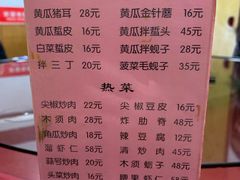 黄瓜猪耳 28元 黄瓜金针蘑 16元
黄瓜蜇皮 16元 黄瓜拌蜇头 45元
白菜蜇皮 16元 黄瓜拌蚬子 28元
拌三丁 20元 菠菜毛蚬子 35元
热菜
尖椒炒肉 22元 尖椒豆皮 16元
木须肉 28元 炸脂脊 48元
角瓜炒肉 18元 辣豆腐 12元
溜虾仁 58元 清炒肉 45元
蒜苔炒肉 20元 木须蛎子 48元
头菜炒肉 16元 腰果虾仁 58元